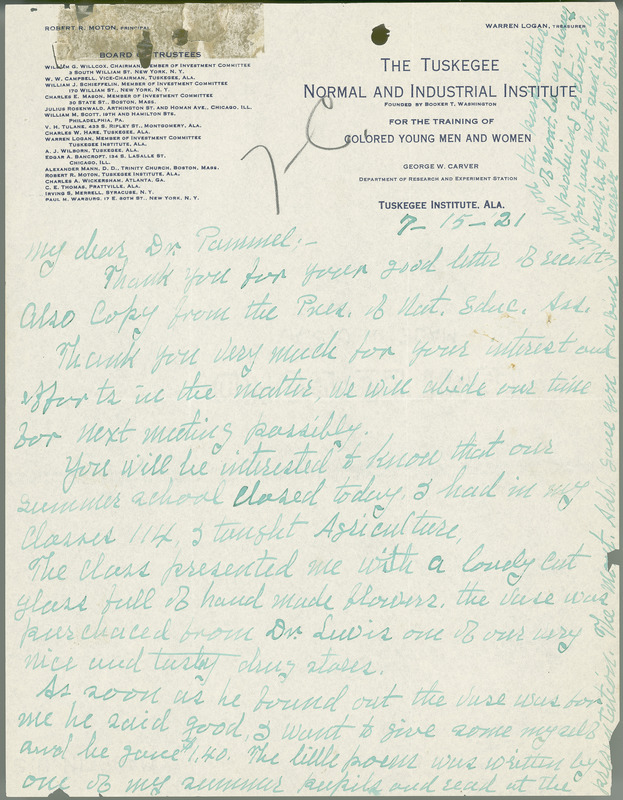 ROBERT R. MOTON, PRINCIPAL
WARREN LOGAN, TREASURER
BOARD OF TRUSTEES
WILLIAM G. WILLCOX, CHAIRMAN, MEMBER OF INVESTMENT COMMITTEE
3 SOUTH WILLIAM ST., NEW YORK, N. Y.
W. W. CAMPBELL, VICE-CHAIRMAN, TUSKEGEE, ALA.
WILLIAM J. SCHIEFFELIN, MEMBER OF INVESTMENT COMMITTEE
170 WILLIAM ST., NEW YORK, N. Y.
CHARLES E. MASON, MEMBER OF INVESTMENT COMMITTEE
30 STATE ST., BOSTON, MASS.
JULIUS ROSENWALD, ARTHINGTON ST. AND HOMAN AVE., CHICAGO, ILL.
WILLIAM M. SCOTT, 15TH AND HAMILTON STS.
PHILADELPHIA, PA.
V. H. TULANE, 435 S. RIPLEY ST., MONTGOMERY, ALA.
CHARLES W. HARE, TUSKEGEE, ALA.
WARREN LOGAN, MEMBER OF INVESTMENT COMMITTEE
TUSKEGEE INSTITUTE, ALA.
A. J. WILBORN, TUSKEGEE, ALA.
EDGAR A. BANCROFT, 134 S. LASALLE ST.
CHICAGO, ILL.
ALEXANDER MANN, D. D., TRINITY CHURCH, BOSTON, MASS.
ROBERT R. MOTON, TUSKEGEE INSTITUTE, ALA.
CHARLES A. WICKERSHAM, ATLANTA, GA.
C. E. THOMAS, PRATTVILLE, ALA.
IRVING S. MERRELL, SYRACUSE, N. Y.
PAUL M. WARBURG, 17 E. 80TH ST., NEW YORK, N. Y.
THE TUSKEGEE
NORMAL AND INDUSTRIAL INSTITUTE
FOUNDED BY BOOKER T. WASHINGTON
FOR THE TRAINING OF
COLORED YOUNG MEN AND WOMEN
GEORGE W. CARVER
DEPARTMENT OF RESEARCH AND EXPERIMENT STATION
TUSKEGEE INSTITUTE, ALA.
7-15-21
My dear Dr. Pammel:-
Thank you for your good letter of recent,
Also Copy from the Pres. of Nat. Educ. Ass.
Thank you very much for your interest and
efforts in the matter, we will abide our time
for next meeting possibly.
You will be interested to know that our
summer school closed today, I had in my
classes 114, I taught Agriculture,
The class presented me with a lovely cut
glass full of hand made flowers, the vase was
purchaced from Dr. Lewis one of our very
nice and tasty drug stores.
As soon as he found out the vase was for
me he said good, I want to give some myself
and he gave $1.40. The little poem was written by
one of my summer pupils and read at the
presentation. The Meth. Adv. gave you a fine